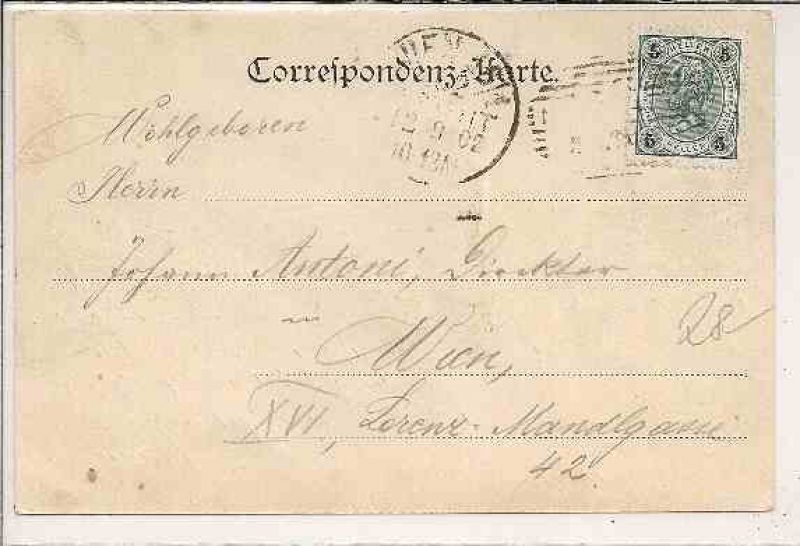 Correspondenz-Karte.
WIEN
12 9 02
5 5
5 HELLER 5
Wohlgeboren
Herrn
Johann Antoni, Direktor
in
Wien,
28
XVI, Lorenz-Mandlgasse
42.